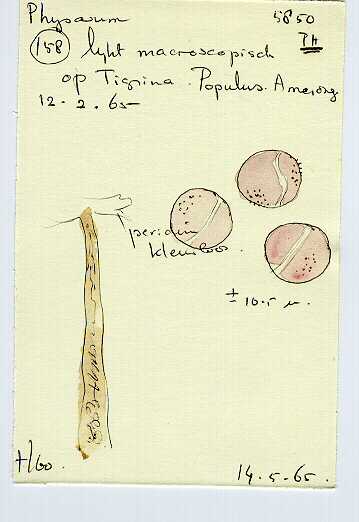 Physarum 5850
158 lijkt macroscopisch PH
op Tigrina. Populus. Amerong
12.2.65
peridium
kleurloos.
± 10.5 µ.
14.5.65.